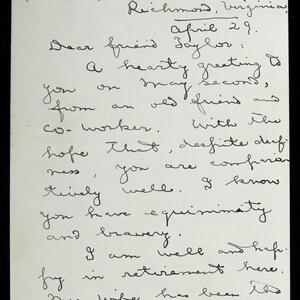 Richmond, Virginia,
April 29.
Dear friend Taylor:
A hearty greeting to
you on May second,
from an old friend and
co-worker. With the
hope that, despite deaf-
ness, you are compara-
tively well. I know
you have equiminity
and bravery.
I am well and hap-
py in retirement here.
My wife has been